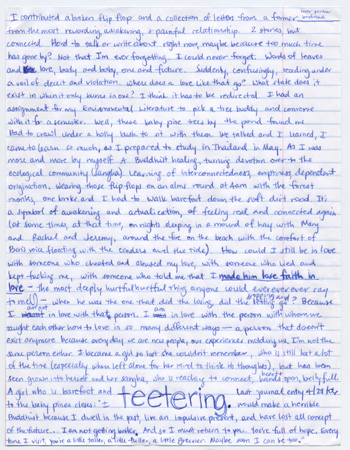 I contributed a broken flip flop and a collection of letters from a former
from the most rewarding, awakening, & painful relationship. 2 stories, but
connected. Hard to talk or write about right now, maybe because too much time
has gone by? Not that I'm ever forgetting. I could never forget. Words of leaves
and love, body and baby, one and future. Suddenly, confusingly, heading under
a veil of deceit and violation. Where does a love like that go? What state does it
exist in when it only burns in one? I think it has to be redirected. I had an
assignment for my Environmental Literature to pick a tree buddy and commune
with it for a semester. Well, these baby pine trees by the pond found me.
Had to crawl under a holly bush to sit with them. We talked and I learned, I
came to learn so much, as I prepared to study in Thailand in May. As I was
more and more by myself. A Buddhist leading, turning devotion over to the
ecological community (sangha). Learning of interconnectedness, emptiness, dependent
origination, wearing those flip-flops on an alms round at 4am with the forest
monks, one broke and I had to walk barefoot down the soft dirt road. It's
a symbol of awakening and actualization, of feeling real and connected again
(or some times, at that time, on nights sleeping in a mound of hay with Mary
and Rachel and Jeremy, around the fire on the beach with the comfort of
floating with the candles and the tide). How could I still be in love
with someone who cheated and abused my love, with someone who lied and
kept fucking me, with someone who told me that I made him lose faith in
love - the most deeply hurtful hurtful thing anyone could ever ever ever say
to me(!) - when he was the one that did the losing, did the letting go? Because
I am not in love with that person. I am in love with the person with whom we
taught each other how to love in so many different ways - a person that doesn't
exist anymore because everyday we are new people, our experiences molding us. I'm not the
same person either. I became a girl so lost she couldn't remember, who is still lost a lot
of the time (especially when left alone for her mind to think its thoughts), but has been
seen grown into herself and her sangha, who is reaching to connect, hands open, belly full.
A girl who is barefoot and teetering. Last journal entry 4/28
to the baby pines close: "I would make a horrible
Buddhist because I dwell in the past, live an impulsive present, and have lost all concept
of the future... I am not getting wiser, And so I must return to you. You're full of hope. Every
time I visit, you're a little taller, a little fuller, a little greener. Maybe soon I can be too."